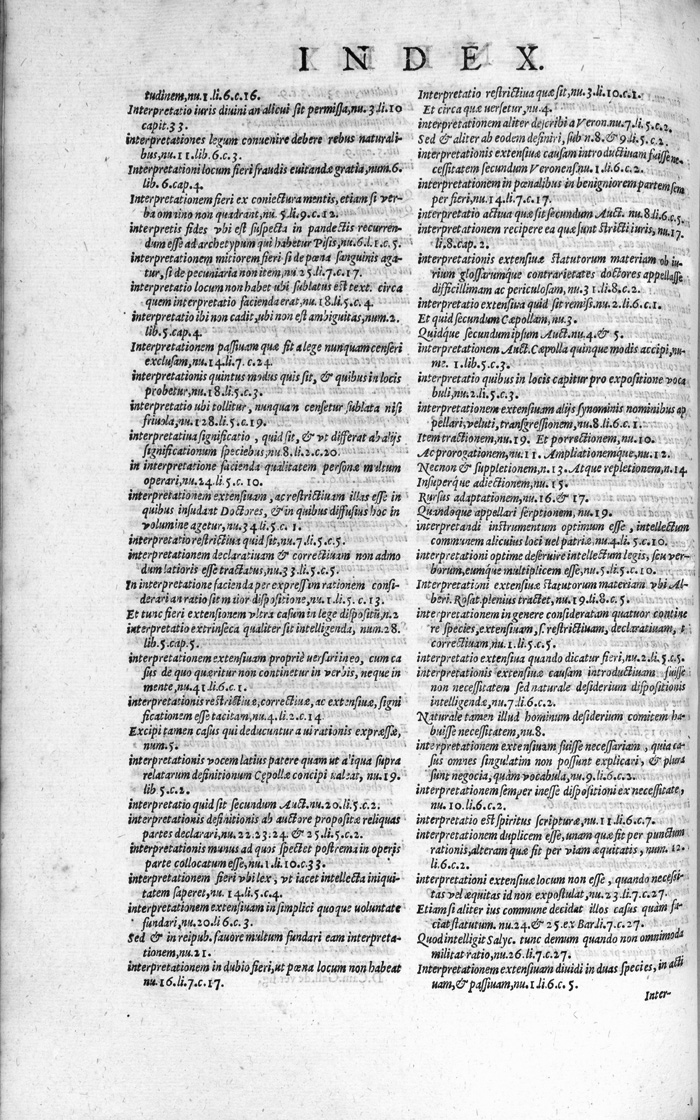 INDEX.
tudinem,nu.1.li.6.c.16.
Interpretatio iuris diuini an alicui sit permissa,nu.3.li.10
capit.33.
interpretationes legum conuenire debere rebus naturali-
bus,nu.11.lib.6.c.3.
Interpretationi locum fieri fraudis euitandæ gratia,num.6.
lib.6.cap.4.
Interpretationem fieri ex coniectura mentis, etiam si ver-
ba omnino non quadrant,nu. 5.li.9.c.12.
interpretis fides vbi est suspecta in pandectis recurren-
dum esse ad archetypum qui habetur Pisis,nu.6.l.1.c.5.
interpretationem mitiorem fieri si de pœna sanguinis aga-
tur, si de pecuniaria non item,nu 25.li.7.c.17.
interpretatio locum non habet ubi sublatus est text. circa
quem interpretatio facienda erat,nu.18.li.5.c.4.
interpretatio ibi non cadit,ubi non est ambiguitas,num.2.
lib.5.cap.4.
Interpretationem passiuam quæ fit a lege nunquam censeri
exclusam,nu.14.li.7.c.24.
interpretationis quintus modus quis sit, & quibus in locis
probetur,nu.18.li.5.c.3.
interpretatio ubi tollitur, nunquam censetur sublata nisi
friuola,nu.128.li.5.c.19.
interpretatiua significatio , quid sit, & vt differat ab alijs
significationum speciebus,nu.8.li.2.c.20.
in interpretatione facienda qualitatem personæ multum
operari,nu.24.li.5.c.10.
interpretationem extensiuam, ac restrictiuam illas esse in
quibus insudant Doctores, & in quibus diffusius hoc in
volumine agetur,nu.34.li.5.c.1.
interpretatio restrictiua quid sit,nu.7.li.5.c.5.
interpretationem declaratiuam & correctiuam non admo
dum latioris esse tractatus,nu.33.li.5.c.5.
In interpretatione facienda per expressim rationem consi-
derari an ratio sit maior dispositione,nu.1.li.5.c.13.
Et tunc fieri extensionem vltra casum in lege dispositū,n.2
interpretatio extrinseca qualiter sit intelligenda, num.28.
lib.5.cap.5.
interpretationem extensiuam propriè versari in eo, cum ca
sus de quo quæritur non continetur in verbis, neque in
mente,nu.41.li.6.c.1.
interpretationis restrictiuæ,correctiuæ, ac extensiuæ, signi
ficationem esse tacitam,nu.4.li.2.c.14
Excipi tamen casus qui deducuntur a ui rationis expressæ,
num.5.
interpretationis vocem latius patere quam ut aliqua supra
relatarum definitionum Cepollæ concipi valeat, nu.19.
lib 5.c.2.
interpretatio quid sit secundum Auct.nu.20.li.5.c.2.
interpretationis definitionis ab auctore propositæ reliquas
partes declarari,nu.22.23.24 & 25.li.5.c.2.
interpretationis munus ad quos spectet postrema in operis
parte collocatum esse,nu.1.li.10.c.33.
interpretationem fieri vbi lex , vt iacet intellecta iniqui-
tatem saperet,nu.14.li.5.c.4.
interpretationem extensiuam in simplici quoque voluntate
fundari,nu.20.li 6.c.3.
Sed & in reipub. fauore multum fundari eam interpreta-
tionem,nu.21.
interpretationem in dubio fieri,ut pœna locum non habeat
nu.16.li.7.c.17.
Interpretatio restrictiua quæ sit,nu.3.li.10.c.1.
Et circa quæ uersetur,nu.4.
interpretationem aliter describi a Veron.nu.7.li.5.c.2.
Sed & aliter ab eodem definiri, sub n.8.& 9.li.5.c.2.
interpretationis extensiuæ causam introductiuam fuisse ne-
cessitatem secundum Veronens.nu.1.li.6.c.2.
interpretationem in pœnalibus in benigniorem partem sem
per fieri,nu.14.li.7.c.17.
interpretatio actiua quæ sit secundum Auct. nu.8.li.6.c.5.
interpretationem recipere ea quæ sunt stricti iuris,nu.17.
li.8.cap.2.
interpretationis extensiuæ statutorum materiam ob iu-
rium glossarumque contrarietates doctores appellasse
difficillimam ac periculosam,nu 3.li.8.c.2.
interpretatio extensiua quid sit remiss.nu.2.li.6.c.1.
Et quid secundum Cæpollam,nu.3.
Quidque secundum ipsum Auct.nu.4.& 5.
interpretationem Auct.Cæpolla quinque modis accipi,nu-
me. 1.lib.5.c.3.
interpretatio quibus in locis capitur pro expositione voca
buli,nu.2.li.5.c.3.
interpretationem extensiuam alijs synominis nominibus ap
pellari,veluti, transgressionem,nu.8.li.6.c.1.
Item tractionem,nu.19. Et porrectionem,nu.10.
Ac prorogationem,nu.11. Ampliationemque,nu.12.
Necnon & suppletionem,n.13. Atque repletionem,n.14
Insuperque adiectionem,nu.15.
Rursus adaptationem,nu.16.& 17.
Quandoque appellari serptionem,nu.19.
interpretandi instrumentum optimum esse , intellectum
communem alicuius loci uel patriæ.nu.4.li.5.c.10.
interpretationi optime deseruire intellectum legis, seu ver-
borum,eumque multiplicem esse,nu.5.li.5.c.10.
Interpretationi extensiuæ statutorum materiam vbi Al-
beri. Rosat.plenius tractet,nu.19.li.8.c.5.
interpretationem in genere consideratam quatuor contine
re species,extensiuam, s. restrictiuam, declaratiuam, &
correctiuam,nu.1.li.5.c.5.
interpretatio extensiua quando dicatur fieri,nu.2.li.5.c.5.
interpretationis extensiuæ causam introductiuam fuisse
non necessitatem sed naturale desiderium dispositionis
intelligendæ,nu.7.li.6.c.2.
Naturale tamen illud hominum desiderium comitem ha-
buisse necessitatem,nu.8.
interpretationem extensiuam fuisse necessariam , quia ca-
sus omnes singulatim non possunt explicari, & plura
sunt negocia, quàm vocabula,nu.9.li.6.c.2.
interpretationem semper inesse dispositioni ex necessitate,
nu.10.li.6.c.2.
interpretatio est spiritus scripturæ,nu.11.li.6.c.7.
interpretationem duplicem esse, unam quæ fit per punctum
rationis,alteram quæ fit per viam æquitatis , num. 12.
li.6.c.2.
interpretationi extensiuæ locum non esse , quando necessi-
tas vel æquitas id non expostulat,nu.23.li.7.c.27.
Etiam si aliter ius commune decidat illos casus quàm fa-
ciat statutum. nu.24.& 25.ex Bar.li.7.c.27.
Quod intelligit Salyc. tunc demum quando non omnimoda
militat ratio,nu.26.li.7.c.27.
Interpretationem extensiuam diuidi in duas species, in acti
uam,& passiuam,nu.1.li.6.c.5.
Inter-